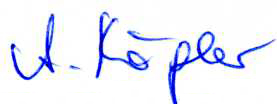 A. Köpler